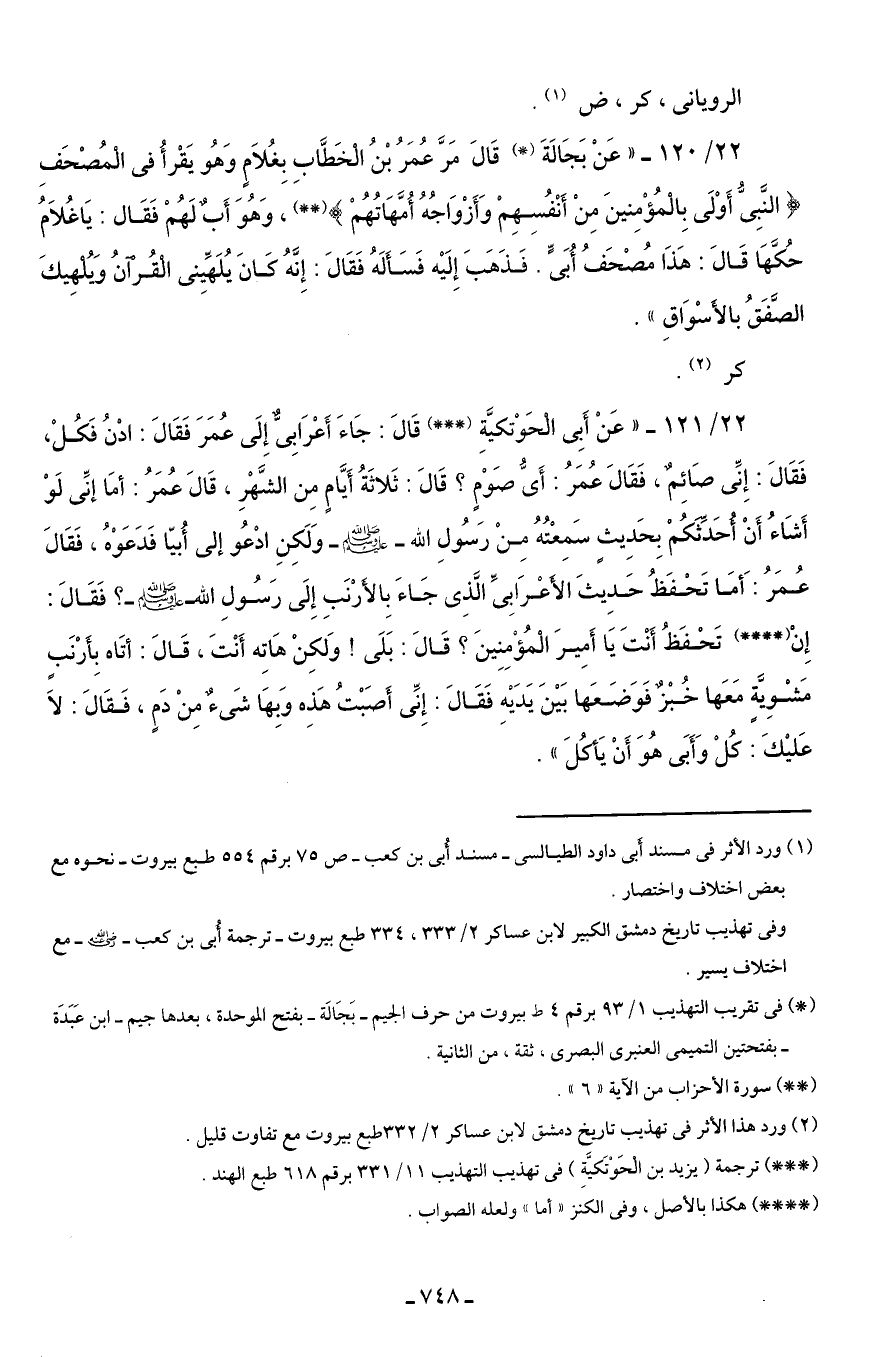 الرويانى ، كر ، ض (١) .
٢٢/ ١٢٠ ـ « عَنْ بَجَالَةَ (*) قَالَ مَرَّ عُمَرُ بْنُ الْخَطَّابِ بِغُلَامٍ وَهُوَ يَقْرَأُ فى الْمُصْحَفِ
﴿ النَّبِىُّ أَوْلَى بِالْمُؤْمِنِينَ مِنْ أَنْفُسِهِمْ وَأَزْوَاجُهُ أُمَّهَاتُهُمْ ﴾(**) ، وَهُوَ أَبٌ لَهُمْ فَقَال : يَاغُلَامُ
حُكَّهَا قَالَ : هَذَا مُصْحَفُ أُبَىٍّ . فَذَهَبَ إِلَيْه فَسَأَلَهُ فَقَالَ : إِنَّهُ كَانَ يُلَهِّينِى الْقُرآنُ وَيُلْهِيكَ
الصَّفَقُ بالأَسْوَاقِ » .
كر (٢) .
٢٢/ ١٢١ ـ « عَنْ أَبِى الْحَوْتكيَّةِ (***) قَالَ : جَاءَ أَعْرَابِىٌّ إِلَى عُمَرَ فَقَالَ : ادْنُ فَكُلْ،
فَقَالَ : إِنِّى صَائِمٌ ، فَقَالَ عُمَرُ : أَىُّ صَوْمٍ ؟ قَالَ : ثَلَاثَةُ أَيَّامٍ مِن الشَّهْرِ ، قَالَ عُمَرُ : أمَا إنِّى لَوْ
أَشَاءُ أَنْ أُحَدِّثَكُمْ بِحَديثٍ سَمِعْتُهُ مِنْ رَسُولِ الله ـ ﷺ ـ وَلَكِنِ ادْعُو إلى أُبيّا فَدَعَوْهُ ، فَقَالَ
عُمَرُ : أَمَا تَحْفَظُ حَدِيثَ الأَعْرَابِىِّ الَّذى جَاءَ بِالأَرْنَبِ إِلَى رَسُولِ اللهـ ﷺ ـ؟ فَقَالَ :
إنْ(****) تَحْفَظُ أَنْتَ يَا أَمِيرَ الْمُؤْمِنِينَ ؟ قَالَ : بَلَى ! وَلَكِنْ هَاتِه أَنْتَ ، قَالَ : أتَاه بِأَرْنَبٍ
مَشْوِيَّةٍ مَعَها خُبْزٌ فَوَضَعَها بَيْنَ يَدَيْهِ فَقَالَ : إِنِّى أَصَبْتُ هَذِه وَبِهَا شَىءٌ مِنْ دَمٍ ، فَقَالَ : لَا
عَلَيْكَ : كُلْ وَأَبَى هُوَ أَنْ يَأكُلَ » .
(١) ورد الأثر فى مسند أبى داود الطيالسى ـ مسند أُبى بن كعب ـ ص ٧٥ برقم ٥٥٤ طبع بيروت ـ نحوه مع
بعض اختلاف واختصار .
وفى تهذيب تاريخ دمشق الكبير لابن عساكر ٢/ ٣٣٣ ، ٣٣٤ طبع بيروت ـ ترجمة أُبى بن كعب ـ رضي الله عنه ـ مع
اختلاف يسير .
(*) فى تقريب التهذيب ١/ ٩٣ برقم ٤ ط بيروت من حرف الجيم ـ بَجَالَة ـ بفتح الموحدة ، بعدها جيم ـ ابن عَبَدَة
ـ بفتحتين التميمى العنبرى البصرى ، ثقة ، من الثانية .
(**) سورة الأحزاب من الآية « ٦ » .
(٢) ورد هذا الأثر فى تهذيب تاريخ دمشق لابن عساكر ٢/ ٣٣٢طبع بيروت مع تفاوت قليل .
(***) ترجمة ( يزيد بن الْحَوْتكيَّة ) فى تهذيب التهذيب ١١/ ٣٣١ برقم ٦١٨ طبع الهند .
(****) هكذا بالأصل ، وفى الكنز « أما » ولعله الصواب .
ـ ٧٤٨ ـ